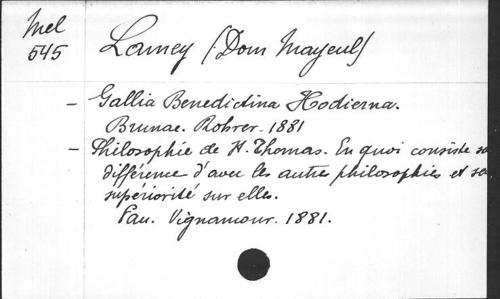 Mel
545
Lamey (Dom Mayeul)
- Gallia Benedictina Hodierna.
Brunae. Rohrer. 1881
- Philosophie de St. Thomas. En quoi consiste sa
différence d'avec les autres philosophies et sa
supériorité sur elles.
Pau. Vignancour. 1881.